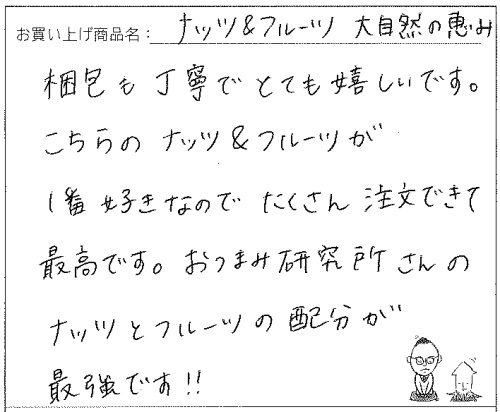 お買い上げ商品名： ナッツ&フルーツ 大自然の恵み
梱包も丁寧でとても嬉しいです。
こちらのナッツ&フルーツが
1番好きなので たくさん注文できて
最高です。おつまみ研究所さんの
ナッツとフルーツの配分が
最強です!!